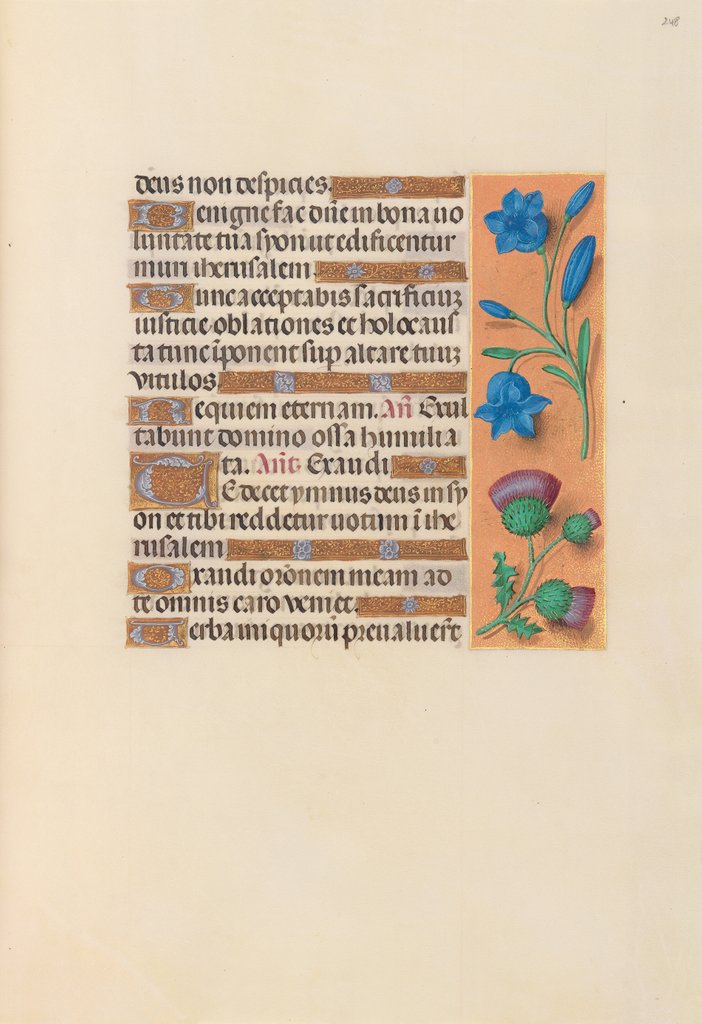 248
deus non despicies.
Benigne fac dñe in bona uo
luntate tua syon ut edificentur
muri iherusalem
Tunc acceptabis sacrificiuʒ
iusticie oblationes et holocaus
ta tunc īponent sup altare tuuʒ
vitulos.
Requiem eternam. Añ Exul
tabunt domino ossa humilia
ta. Añt Exaudi
TE decet ymnus deus in sy
on et tibi reddetur uotum ī ihe
rusalem
Exaudi orõnem meam ad
te omnis caro veniet.
Verba iniquorũ preualuerẽt